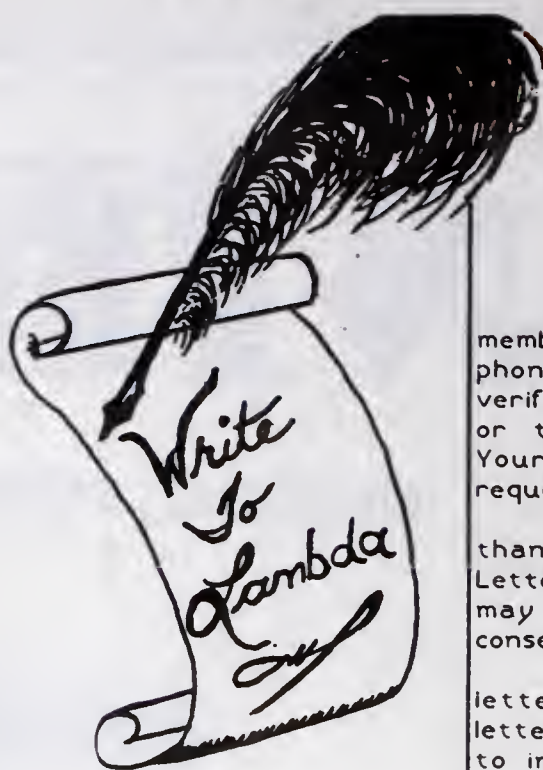 Write
To
Lambda
memb
phon
verif
or t
Your
reque
than
Lette
may
conse
lette
lette
to in